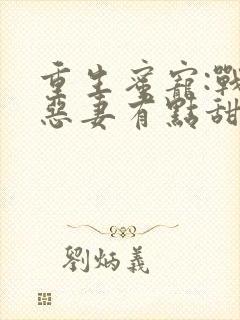 重生蜜寵:戰
惡妻有點甜
劉炳義